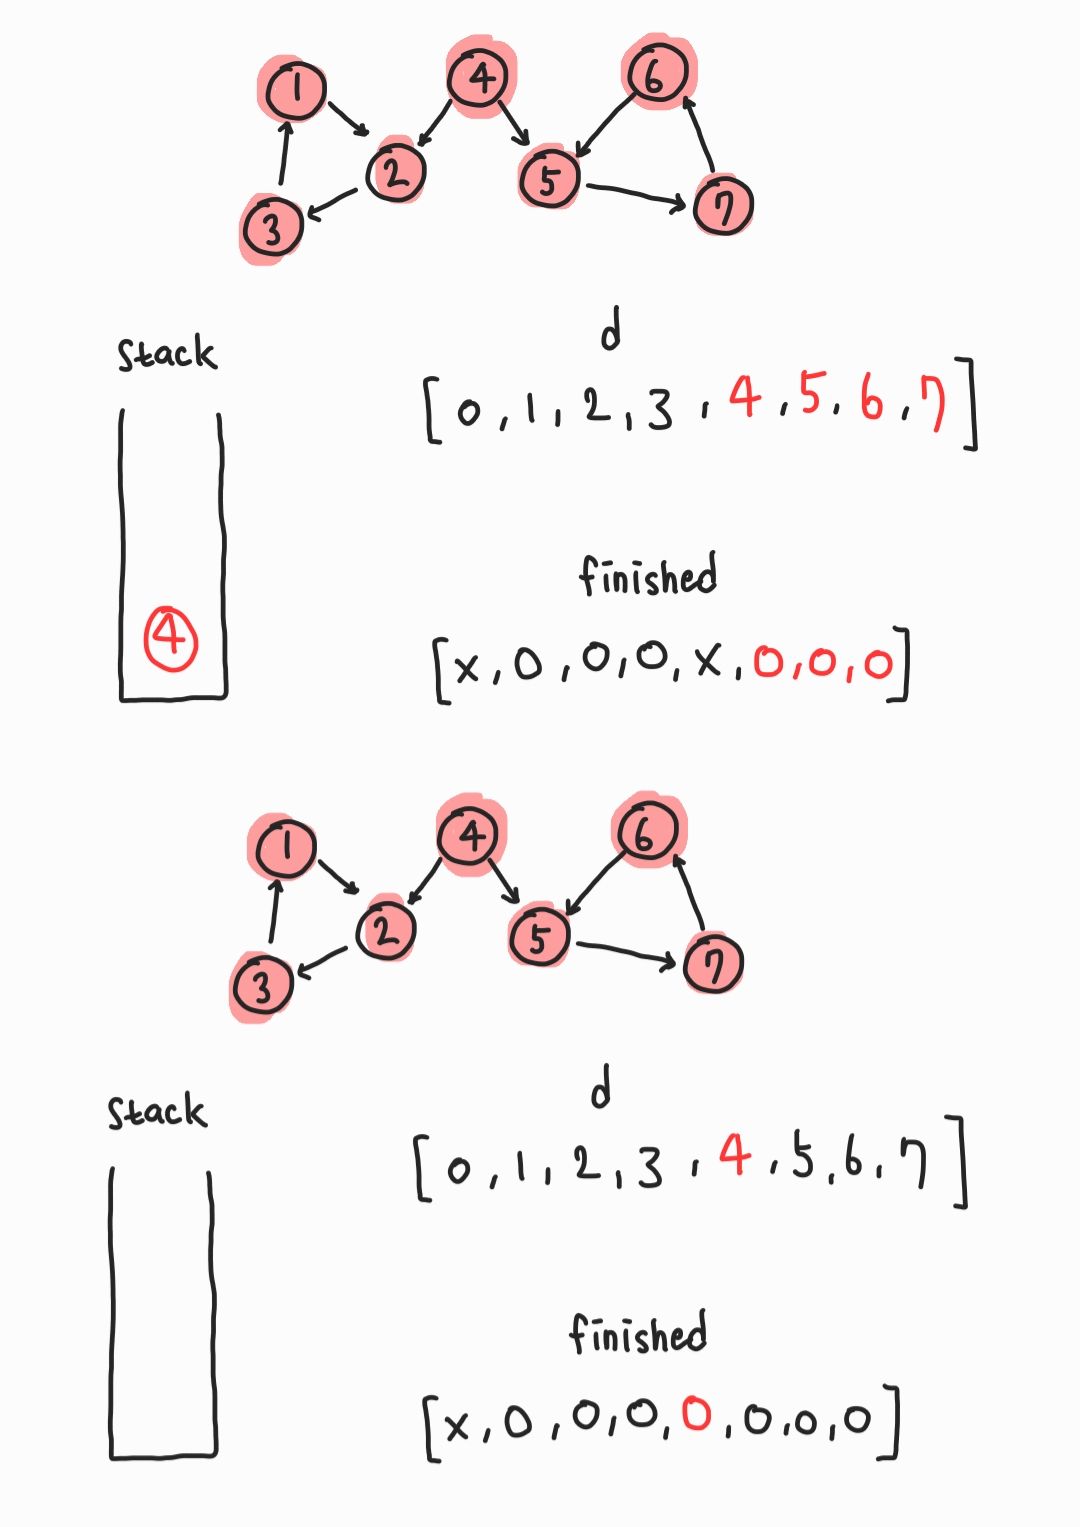 1 4 6
2 5
3 7
stack
d
[0, 1, 2, 3, 4, 5, 6, 7]
finished
4
[x, 0, 0, 0, x, 0, 0, 0]
1 4 6
2 5
3 7
stack
d
[0, 1, 2, 3, 4, 5, 6, 7]
finished
[x, 0, 0, 0, 0, 0, 0, 0]